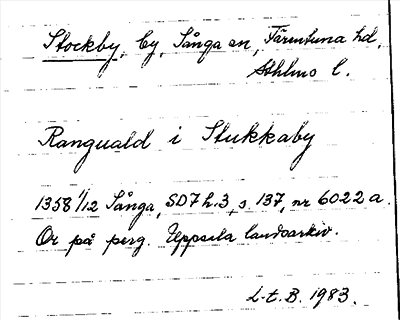 Stockby, by, Sånga sn, Färentuna hd,
Sthlms l.
Ranguald i Stukkaby
1358 1/12 Sånga, SD7 h.3, s. 137, nr 6022 a.
Or på perg. Uppsala landsarkiv.
L-t. B. 1983.